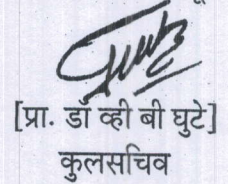 [प्रा. डॉ व्ही बी घुटे]
कुलसचिव